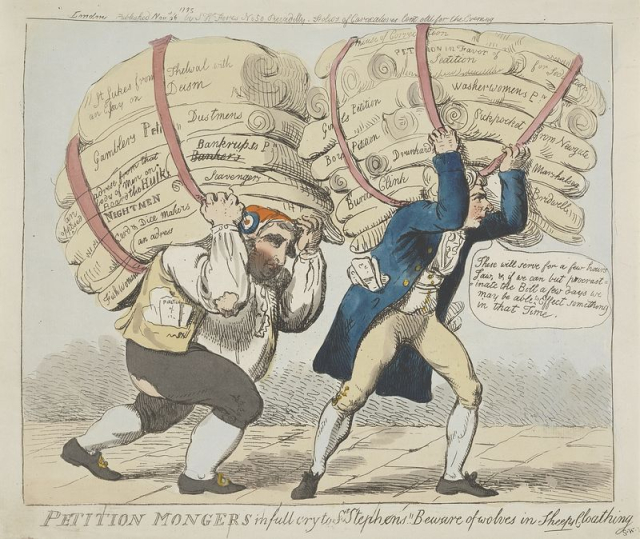 London Published Nov 26 1795 by S W Fores No 50 Piccadilly. Folios of Carracaturs lent out for the Evening
St Jukes from Thelwal with
an Jay on Deism
Gamblers Petn
Dustmens
Bankrupts Pn
Bankers
Scavengers
adress from that
body of Men on
Board the Hulks
NIGHTMEN
Card & Dice Makers
an adress
Petition in Favor of
Petition
Washerwomens Pn
Girls Petition
Pickpocket
from Newgate
Petition
Drunkard
Marshalsea
Clink
Bridwells
These will serve for a few hours
Jaw, & if we can but procrast-
inate the Bill a few days we
may be able to effect something
in that Time.
PETITION MONGERS in full cry to St Stephen's "Beware of wolves in Sheeps Cloathing